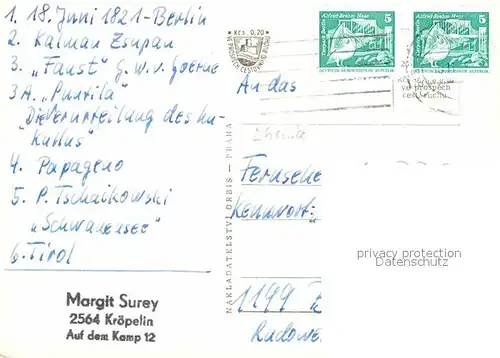 1. 18. Juni 1821 - Berlin
2. Kalman Zsupan
3. „Faust“ G. W. v. Goethe
3A. „Puntila“
Die Verurteilung des Lu-
kullus
4. Papageno
5. P. Tschaikowski
„Schwanensee“
6. Tirol
Margit Surey
2564 Kröpelin
Auf dem Kamp 12
NAKLADATELSTVÍ ORBIS — PRAHA
Kčs 0,20
Alfred-Brehm-Haus
5
DEUTSCHE DEMOKRATISCHE REPUBLIK
Alfred-Brehm-Haus
5
DEUTSCHE DEMOKRATISCHE REPUBLIK
ve prospěch
An das
Fernsehe
Kennwort:
1199
privacy protection
Datenschutz